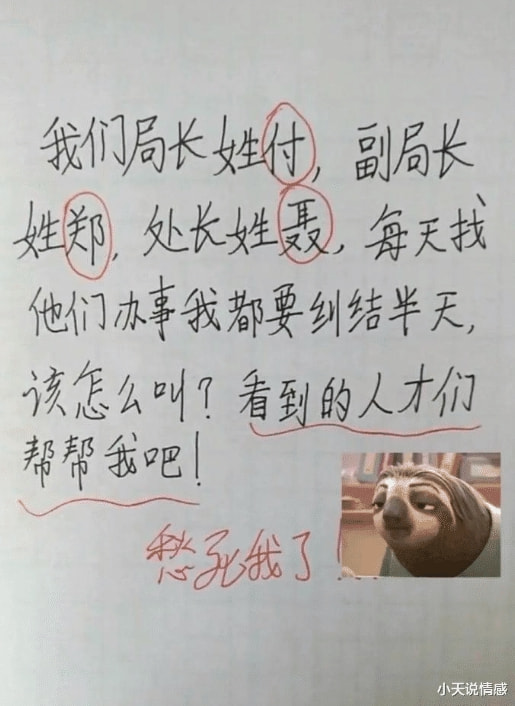 我们局长姓付，副局长
姓郑，处长姓聂，每天找
他们办事我都要纠结半天，
该怎么叫？看到的人才们
帮帮我吧！
愁死我了！
小天说情感